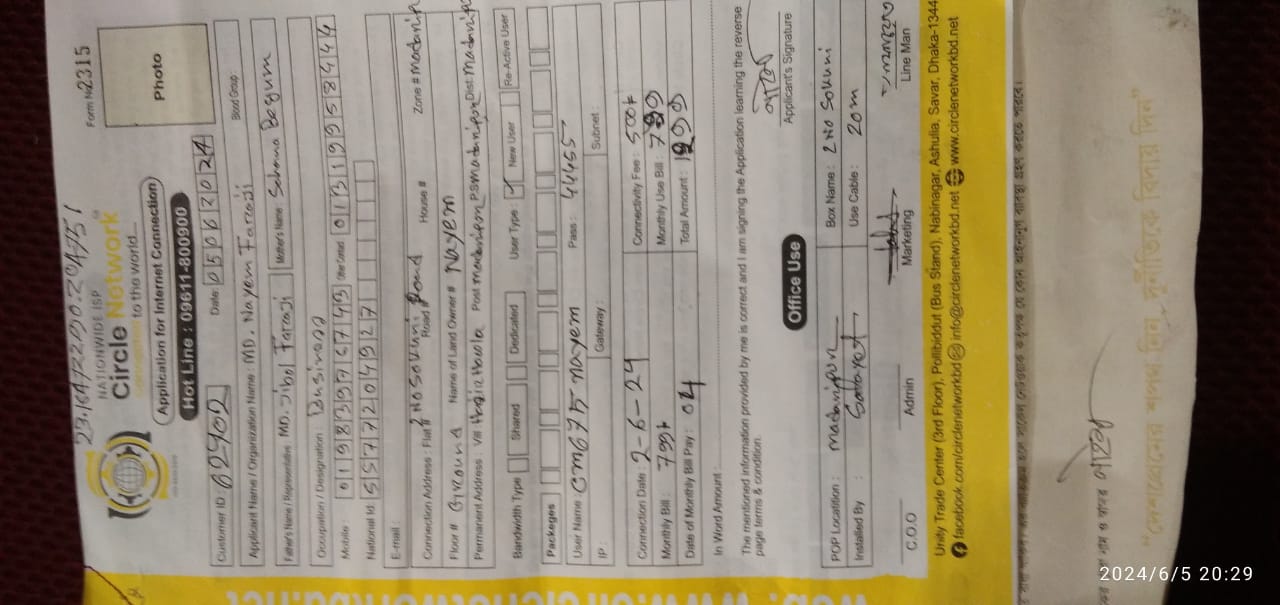 23.164122, 90.204751
Form No 2315
NATIONWIDE ISP
Circle Network
to the world...
Application for Internet Connection
Photo
Hot Line : 09611-800900
Customer ID 62902 Date: 05062024 Blood Group
Applicant Name / Organization Name : MD. Nayem Farazi
Father's Name / Representative MD. Jibol Farazi Mother's Name :
Occupation / Designation : Business
Mobile : Other Contact 01311995844
National Id: 5577204927
E-mail :
Connection Address : Flat # 2 No Sokuni Road # Road House # Zone # madarip
Floor # Ground Name of Land Owner # Nayem
Permanent Address : Vill Post PS Dist. madarip
Bandwidth Type Shared Dedicated User Type : New User Re-Active User
Packeges
User Name : cm675-nayem Pass : 44455
IP : Gateway : Subnet :
Connection Date : 2-6-24 Connectivity Fee : 500
Monthly Bill : 799 Monthly Use Bill :
Date of Monthly Bill Pay : 04 Total Amount :
In Word Amount :
The mentioned information provided by me is correct and I am signing the Application learning the reverse
page terms & condition.
Applicant's Signature
Office Use
POP Locatition : madaripur Box Name : 2 No Sokuni
Installed By : Use Cable : 20m
C.O.O Admin Marketing Line Man
Unity Trade Center (3rd Floor), Pollibiddut (Bus Stand), Nabinagar, Ashulia, Savar, Dhaka-1344
facebook.com/circlenetworkbd info@circlenetworkbd.net www.circlenetworkbd.net
2024/6/5 20:29